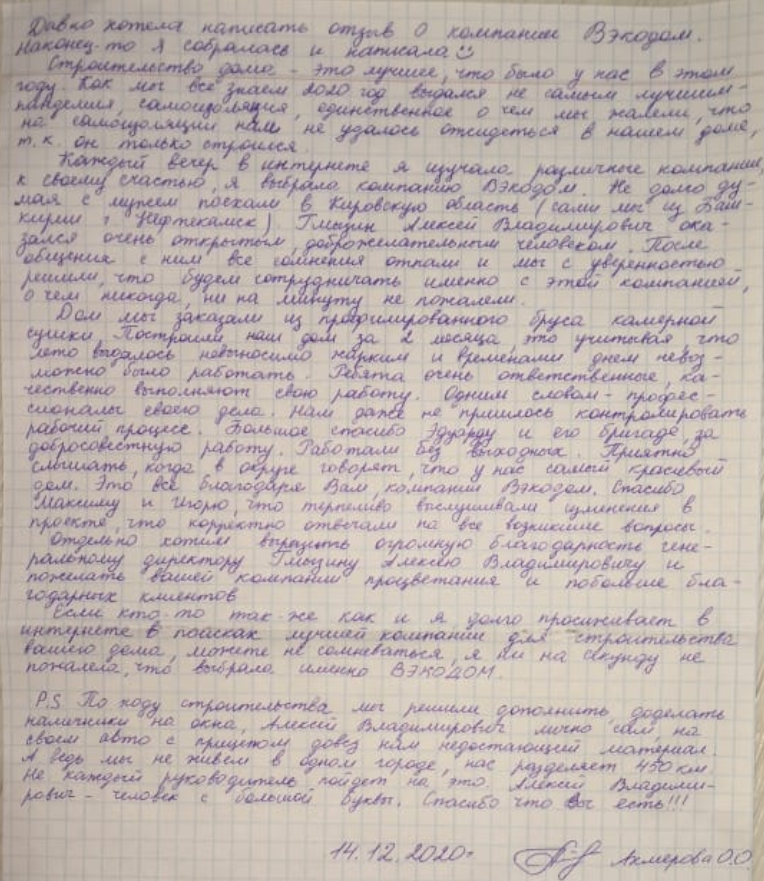 Давно хотела написать отзыв о компании Вэкодом.
Наконец-то я собралась и написала
Строительство дома - это лучшее, что было у нас в этом
году. Как мы все знаем 2020 год выдался не самым лучшим -
пандемия, самоизоляция, единственное о чем мы жалели, что
на самоизоляции нам не удалось отсидеться в нашем доме,
т.к. он только строился.
Каждый вечер в интернете я изучала различные компании,
к своему счастью, я выбрала компанию Вэкодом. Не долго ду-
мая с мужем поехали в Кировскую область (сами мы из Баш-
кирии г. Нефтекамск). Гмызин Алексей Владимирович ока-
зался очень открытым, доброжелательным человеком. После
общения с ним все сомнения отпали и мы с уверенностью
решили, что будем сотрудничать именно с этой компанией,
о чем никогда, ни на минуту не пожалели.
Дом мы заказали из профилированного бруса камерной
сушки. Построили наш дом за 2 месяца, это учитывая, что
лето выдалось невыносимо жарким и временами днем невоз-
можно было работать. Ребята очень ответственные, ка-
чественно выполняют свою работу. Одним словом - профес-
сионалы своего дела. Нам даже не пришлось контролировать
рабочий процесс. Большое спасибо Эдуарду и его бригаде, за
добросовестную работу. Работали без выходных. Приятно
слышать, когда в округе говорят, что у нас самый красивый
дом. Это все благодаря Вам, компании Вэкодом. Спасибо
Максиму и Игорю, что терпеливо выслушивали изменения в
проекте, что корректно отвечали на все возникшие вопросы.
Отдельно хотим выразить огромную благодарность гене-
ральному директору Гмызину Алексею Владимировичу и
пожелать вашей компании процветания и побольше бла-
годарных клиентов
Если кто-то так-же как и я долго просиживает в
интернете в поисках лучшей компании для строительства
вашего дома, можете не сомневаться, я ни на секунду не
пожалела, что выбрала именно ВЭКОДОМ.
P.S. По ходу строительства мы решили дополнить, доделать
наличники на окна, Алексей Владимирович лично сам, на
своем авто с прицепом довез нам недостающий материал.
А ведь мы не живем в одном городе, нас разделяет 450 км.
Не каждый руководитель пойдет на это. Алексей Владими-
рович - человек с большой буквы. Спасибо что Вы есть!!!
14.12.2020г Акмерова О.О.